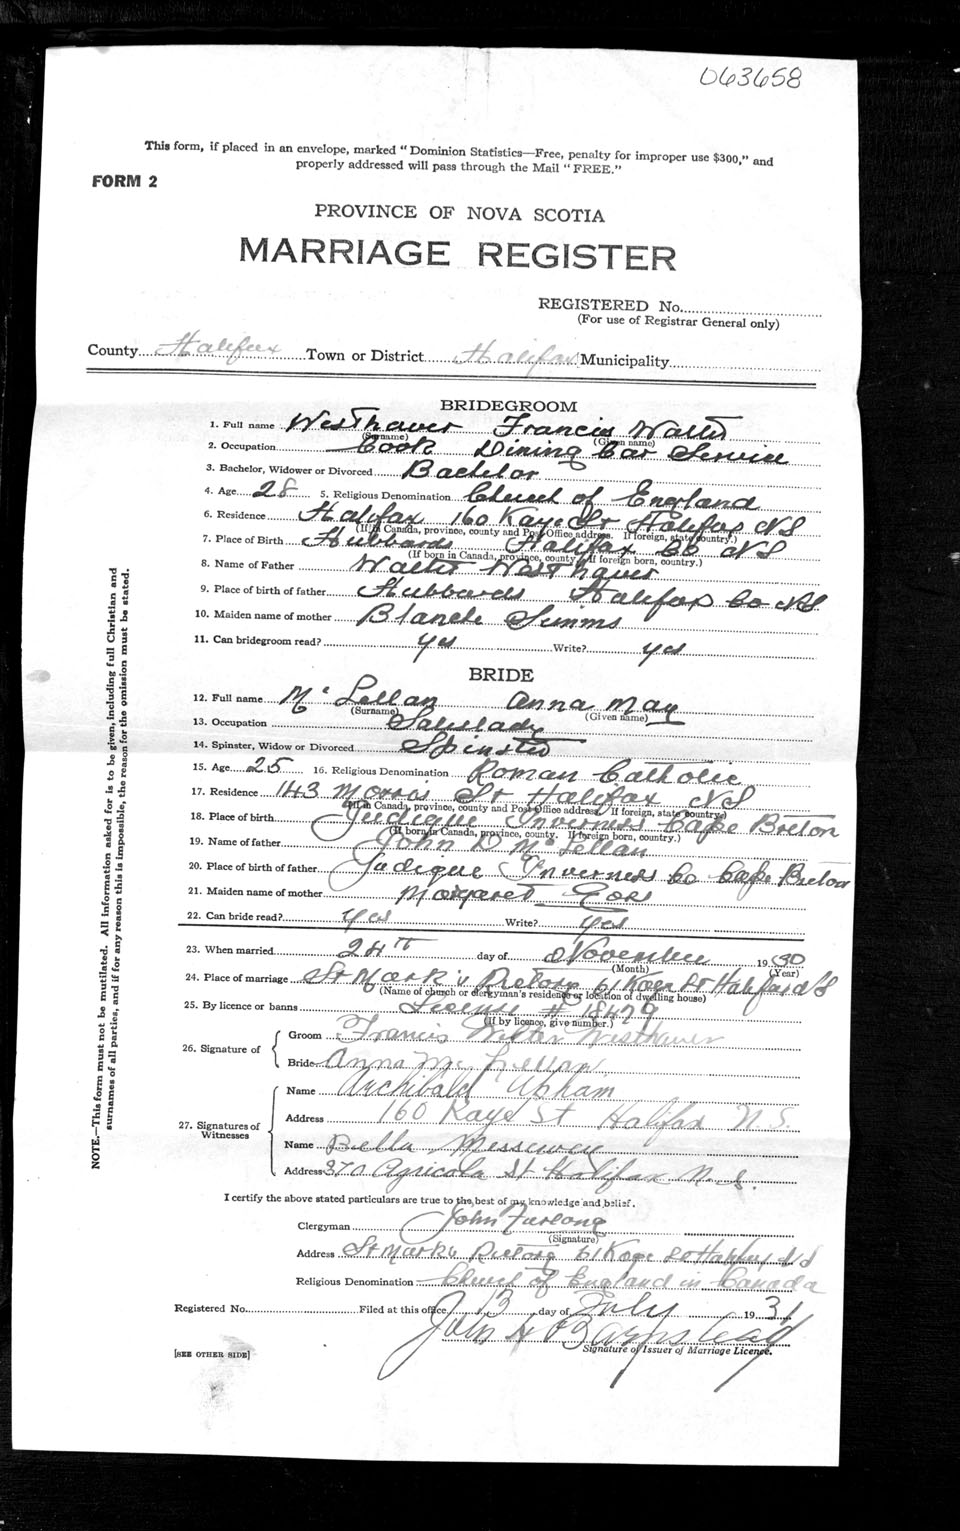 063658
This form, if placed in an envelope, marked "Dominion Statistics—Free, penalty for improper use $300," and
properly addressed will pass through the Mail "FREE."
FORM 2
PROVINCE OF NOVA SCOTIA
MARRIAGE REGISTER
REGISTERED No.
(For use of Registrar General only)
County Halifax Town or District Halifax Municipality
BRIDEGROOM
1. Full name Westhaver Francis Walter
(Surname) (Given name)
2. Occupation Cook Dining Car Service
3. Bachelor, Widower or Divorced Bachelor
4. Age 28 5. Religious Denomination Church of England
6. Residence Halifax 160 Kaye St Halifax NS
(If in Canada, province, county and Post Office address. If foreign, state country.)
7. Place of Birth Hubbards Halifax Co NS
(If born in Canada, province, county. If foreign born, country.)
8. Name of Father Walter Westhaver
9. Place of birth of father Hubbards Halifax Co NS
10. Maiden name of mother Blanche Simms
11. Can bridegroom read? yes Write? yes
BRIDE
12. Full name McLellan Anna May
(Surname) (Given name)
13. Occupation Saleslady
14. Spinster, Widow or Divorced Spinster
15. Age 25 16. Religious Denomination Roman Catholic
17. Residence 143 Morris St Halifax NS
(If in Canada, province, county and Post Office address. If foreign, state country.)
18. Place of birth Judique Inverness Cape Breton
(If born in Canada, province, county. If foreign born, country.)
19. Name of father John D McLellan
20. Place of birth of father Judique Inverness Co Cape Breton
21. Maiden name of mother Margaret
22. Can bride read? Yes Write? Yes
23. When married 24th day of November 1930
(Month) (Year)
24. Place of marriage St Mark's Rectory 61 Kaye St Halifax NS
(Name of church or clergyman's residence or location of dwelling house)
25. By licence or banns License # 18479
(If by licence, give number.)
26. Signature of
Groom Francis Walter Westhaver
Bride Anna McLellan
27. Signatures of Witnesses
Name Archibald Upham
Address 160 Kaye St Halifax N.S.
Name Bella
Address 370 Agricola St Halifax N.S.
I certify the above stated particulars are true to the best of my knowledge and belief.
Clergyman John Furlong
(Signature)
Address St Marks Rectory 61 Kaye St Halifax NS
Religious Denomination Church of England in Canada
Registered No. Filed at this office 13 day of July 1931
John H Barnstead
Signature of Issuer of Marriage Licence.
[SEE OTHER SIDE]
NOTE.—This form must not be mutilated. All information asked for is to be given, including full Christian and
surnames of all parties, and if for any reason this is impossible, the reason for the omission must be stated.